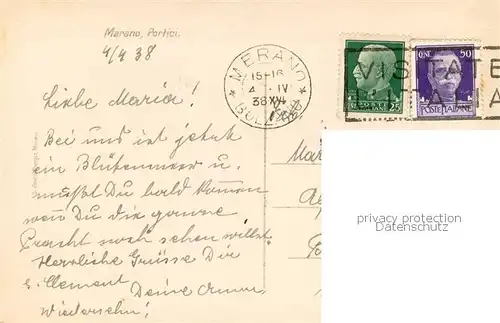 Merano, Portici.
4/4 38
MERANO
15-16
4 - IV
38 XVI
BOLZANO
25
CENT. 50
POSTE ITALIANE
VISITATE
Liebe Maria!
Bei uns ist jetzt
ein Blütenmeer u.
mußt Du bald kommen
wen Du die ganze
Pracht noch sehen willst.
Herrliche Grüsse Dir
u. Clement
Deine
Wiedersehn!
Mar
privacy protection
Datenschutz